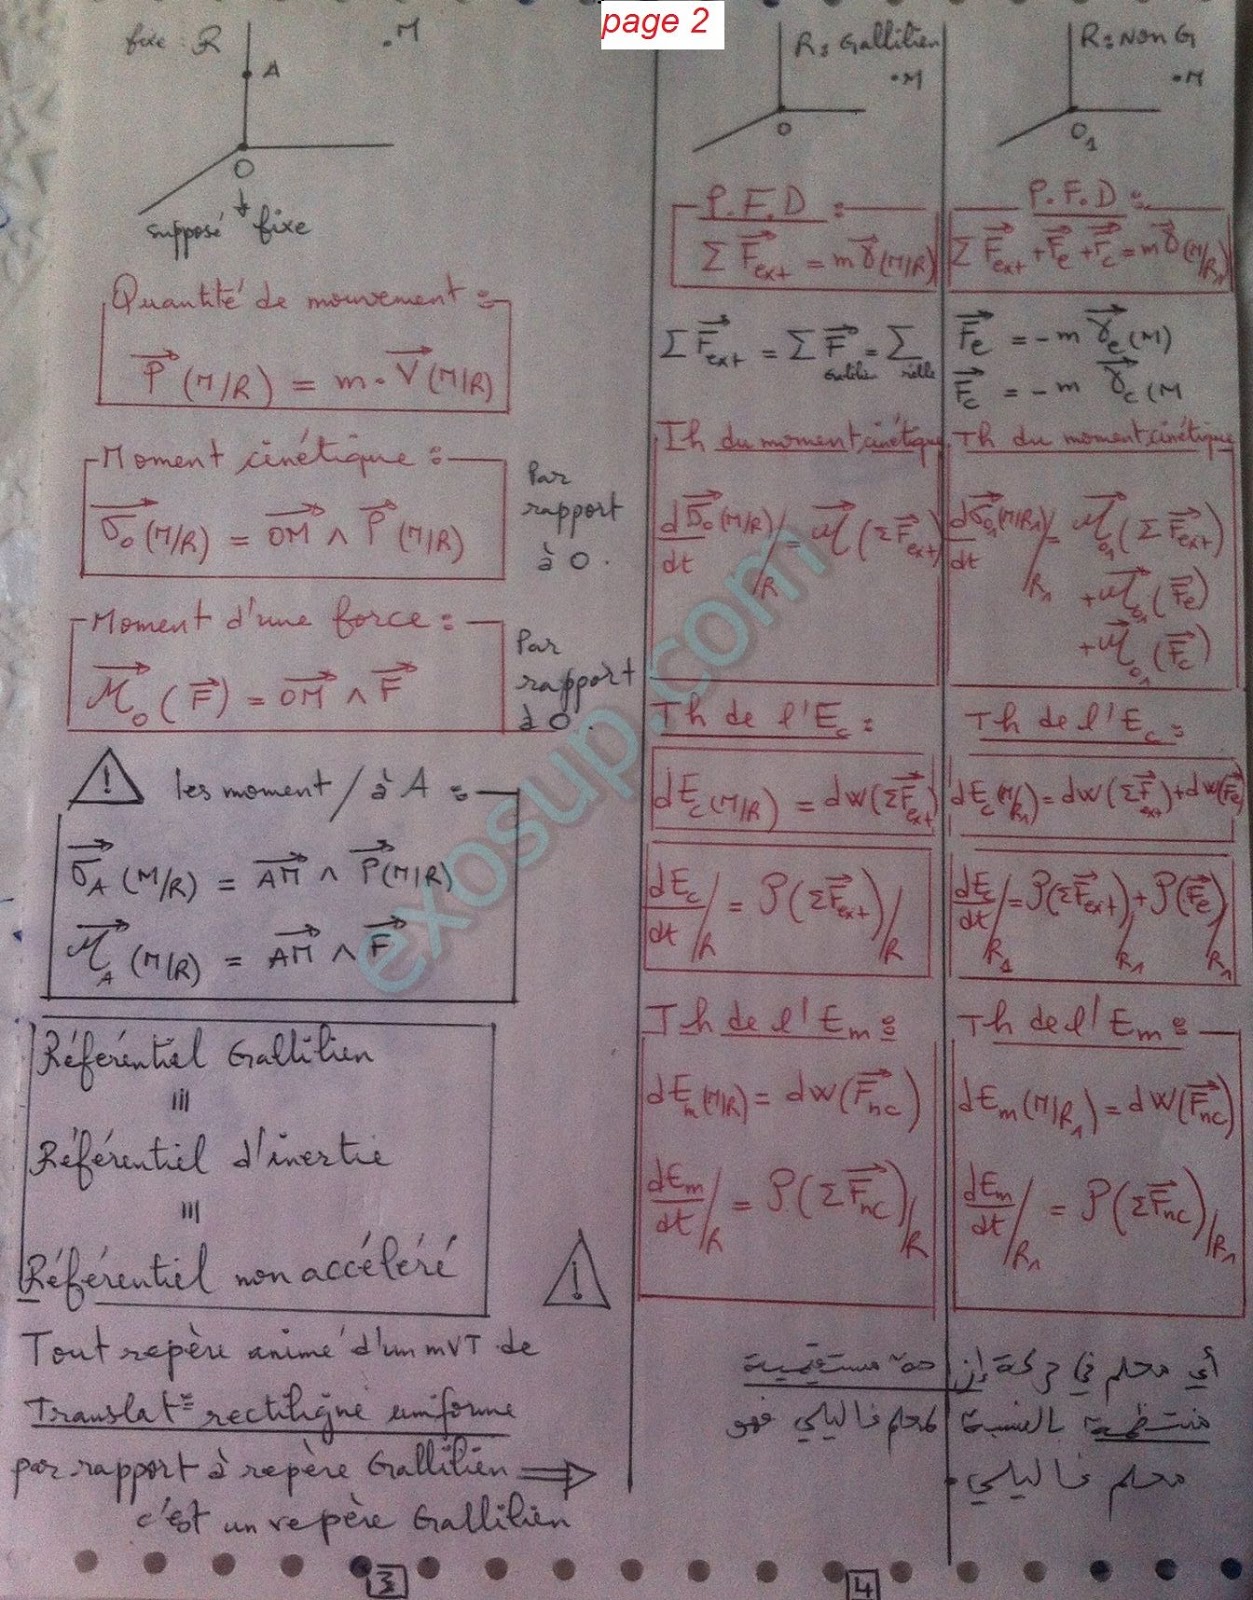 page 2
fixe : R
M
A
O
supposé fixe
Quantité de mouvement :
P (M/R) = m . V (M/R)
Moment cinétique :
σ₀ (M/R) = OM ∧ P (M/R)
Par
rapport
à O .
Moment d'une force :
M₀ ( F ) = OM ∧ F
Par
rapport
à O .
! les moment / à A :
σ_A (M/R) = AM ∧ P (M/R)
M_A (M/R) = AM ∧ F
Référentiel Gallilien
≡
Référentiel d'inertie
≡
Référentiel non accéléré
!
Tout repère animé d'un mVT de
Translat= rectiligne uniforme
par rapport à repère Gallilien ⇒
c'est un repère Gallilien
3
R : Gallilien
M
O
P.F.D :
Σ F_ext = m γ (M/R)
Σ F_ext = Σ F = Σ
Th du moment cinétique
dσ₀ (M/R)/dt /R = M (Σ F_ext)
Th de l'Ec :
dEc (M/R) = dw (Σ F_ext)
dEc/dt /R = P (Σ F_ext) /R
Th de l'Em :
dEm (M/R) = dw (F_nc)
dEm/dt /R = P (Σ F_nc) /R
R : Non G
M
O₁
P.F.D :
Σ F_ext + F_e + F_c = m γ (M/R₁)
F_e = - m γ_e (M)
F_c = - m γ_c (M
Th du moment cinétique
dσ_O₁ (M/R₁)/dt /R₁ = M_O₁ (Σ F_ext)
+ M_O₁ (F_e)
+ M_O₁ (F_c)
Th de l'Ec :
dEc (M/R₁) = dw (Σ F_ext) + dw (F_e)
dEc/dt /R₁ = P (Σ F_ext) /R₁ + P (F_e) /R₁
Th de l'Em :
dEm (M/R₁) = dW (F_nc)
dEm/dt /R₁ = P (Σ F_nc) /R₁
أي معلم في حركة إزاحة مستقيمية
منتظمة بالنسبة لمعلم غاليلي فهو
معلم غاليلي .
4
exosup.com